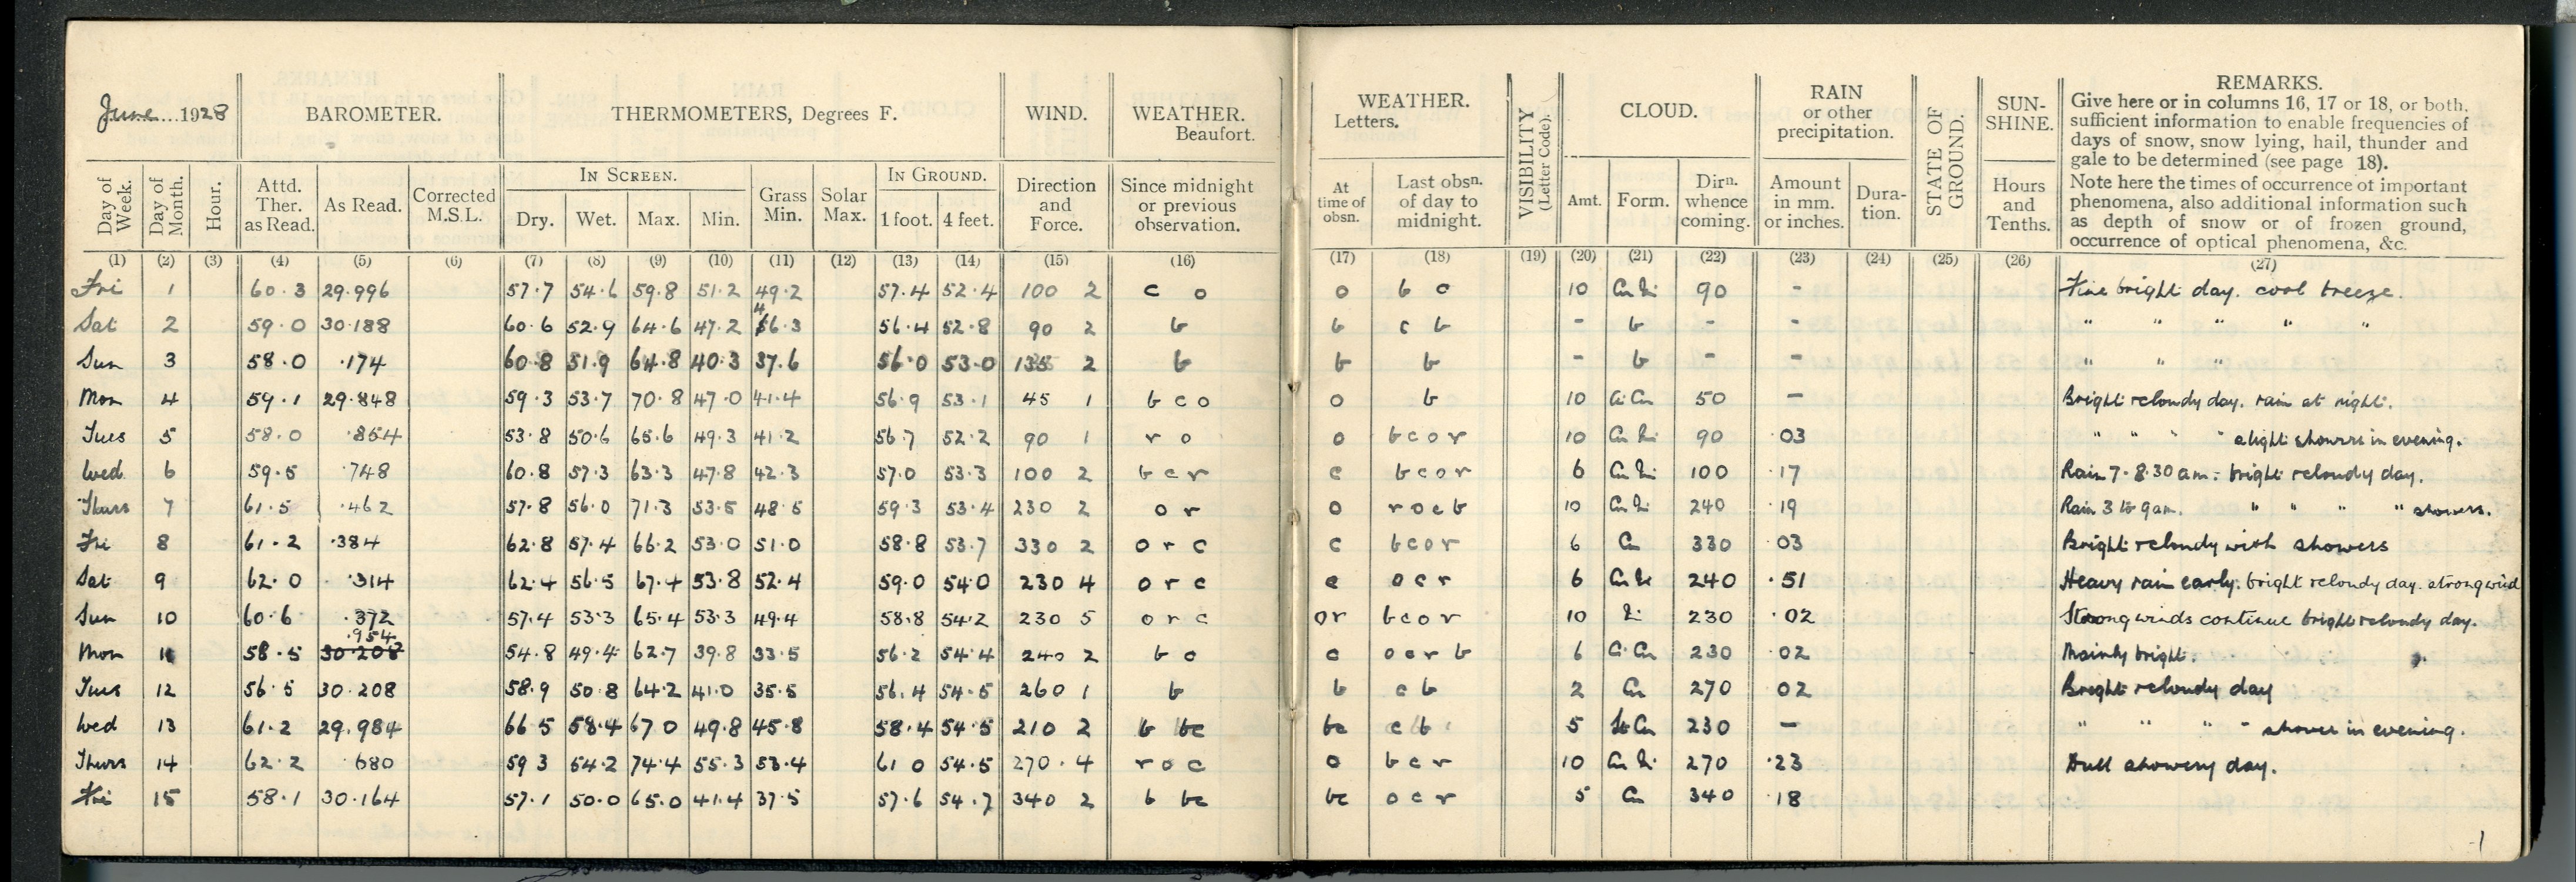 June...1928 BAROMETER. THERMOMETERS, Degrees F. WIND. WEATHER. Beaufort. WEATHER. Letters. VISIBILITY (Letter Code). CLOUD. RAIN or other precipitation. STATE OF GROUND. SUN-SHINE. REMARKS.
Give here or in columns 16, 17 or 18, or both,
sufficient information to enable frequencies of
days of snow, snow lying, hail, thunder and
gale to be determined (see page 18).
Note here the times of occurrence of important
phenomena, also additional information such
as depth of snow or of frozen ground,
occurrence of optical phenomena, &c.
Day of Week. Day of Month. Hour. Attd. Ther. as Read. As Read. Corrected M.S.L. IN SCREEN. Dry. Wet. Max. Min. Grass Min. Solar Max. IN GROUND. 1 foot. 4 feet. Direction and Force. Since midnight or previous observation. At time of obsn. Last obsn. of day to midnight. Amt. Form. Dirn. whence coming. Amount in mm. or inches. Dura-tion. Hours and Tenths.
(1) (2) (3) (4) (5) (6) (7) (8) (9) (10) (11) (12) (13) (14) (15) (16) (17) (18) (19) (20) (21) (22) (23) (24) (25) (26) (27)
Fri 1 60.3 29.996 57.7 54.6 59.8 51.2 49.2 57.4 52.4 100 2 c o o b c 10 90 - Fine bright day. cool breeze.
Sat 2 59.0 30.188 60.6 52.9 64.6 47.2 46.3 56.4 52.8 90 2 b b c b - b - - " " " " "
Sun 3 58.0 .174 60.8 51.9 64.8 40.3 37.6 56.0 53.0 135 2 b b b - b - - " " "
Mon 4 59.1 29.848 59.3 53.7 70.8 47.0 41.4 56.9 53.1 45 1 b c o o b 10 Ci Cu 50 - Bright & cloudy day. rain at night.
Tues 5 58.0 .854 53.8 50.6 65.6 49.3 41.2 56.7 52.2 90 1 r o o b c o r 10 Cu Ni 90 .03 " " " " slight showers in evening.
Wed 6 59.5 .748 60.8 57.3 63.3 47.8 42.3 57.0 53.3 100 2 b c r c b c o r 6 Cu Ni 100 .17 Rain 7-8.30 am: bright & cloudy day.
Thurs 7 61.5 .462 57.8 56.0 71.3 53.5 48.5 59.3 53.4 230 2 o r o r o c b 10 Cu Ni 240 .19 Rain 3 to 9 am. " " " " showers.
Fri 8 61.2 .384 62.8 57.4 66.2 53.0 51.0 58.8 53.7 330 2 o r c c b c o r 6 Cu 330 .03 Bright & cloudy with showers
Sat 9 62.0 .314 62.4 56.5 67.4 53.8 52.4 59.0 54.0 230 4 o r c c o c r 6 Cu Ni 240 .51 Heavy rain early. bright & cloudy day. strong wind
Sun 10 60.6 .372 57.4 53.3 65.4 53.3 49.4 58.8 54.2 230 5 o r c or b c o r 10 Ni 230 .02 Strong winds continue bright & cloudy day.
.954
Mon 11 58.5 30.208 54.8 49.4 62.7 39.8 33.5 56.2 54.4 240 2 b c c o c r b 6 Ci Cu 230 .02 Mainly bright.
Tues 12 56.5 30.208 58.9 50.8 64.2 41.0 35.5 56.4 54.5 260 1 b b c b 2 Cu 270 02 Bright & cloudy day
Wed 13 61.2 29.984 66.5 58.4 67.0 49.8 45.8 58.4 54.5 210 2 b bc bc c b 5 St Cu 230 - " " " " shower in evening.
Thurs 14 62.2 .680 59.3 54.2 74.4 55.3 53.4 61.0 54.5 270.4 r o c o b c r 10 Cu Ni 270 .23 Dull showery day.
Fri 15 58.1 30.164 57.1 50.0 65.0 41.4 37.5 57.6 54.7 340 2 b bc bc o c r 5 Cu 340 .18